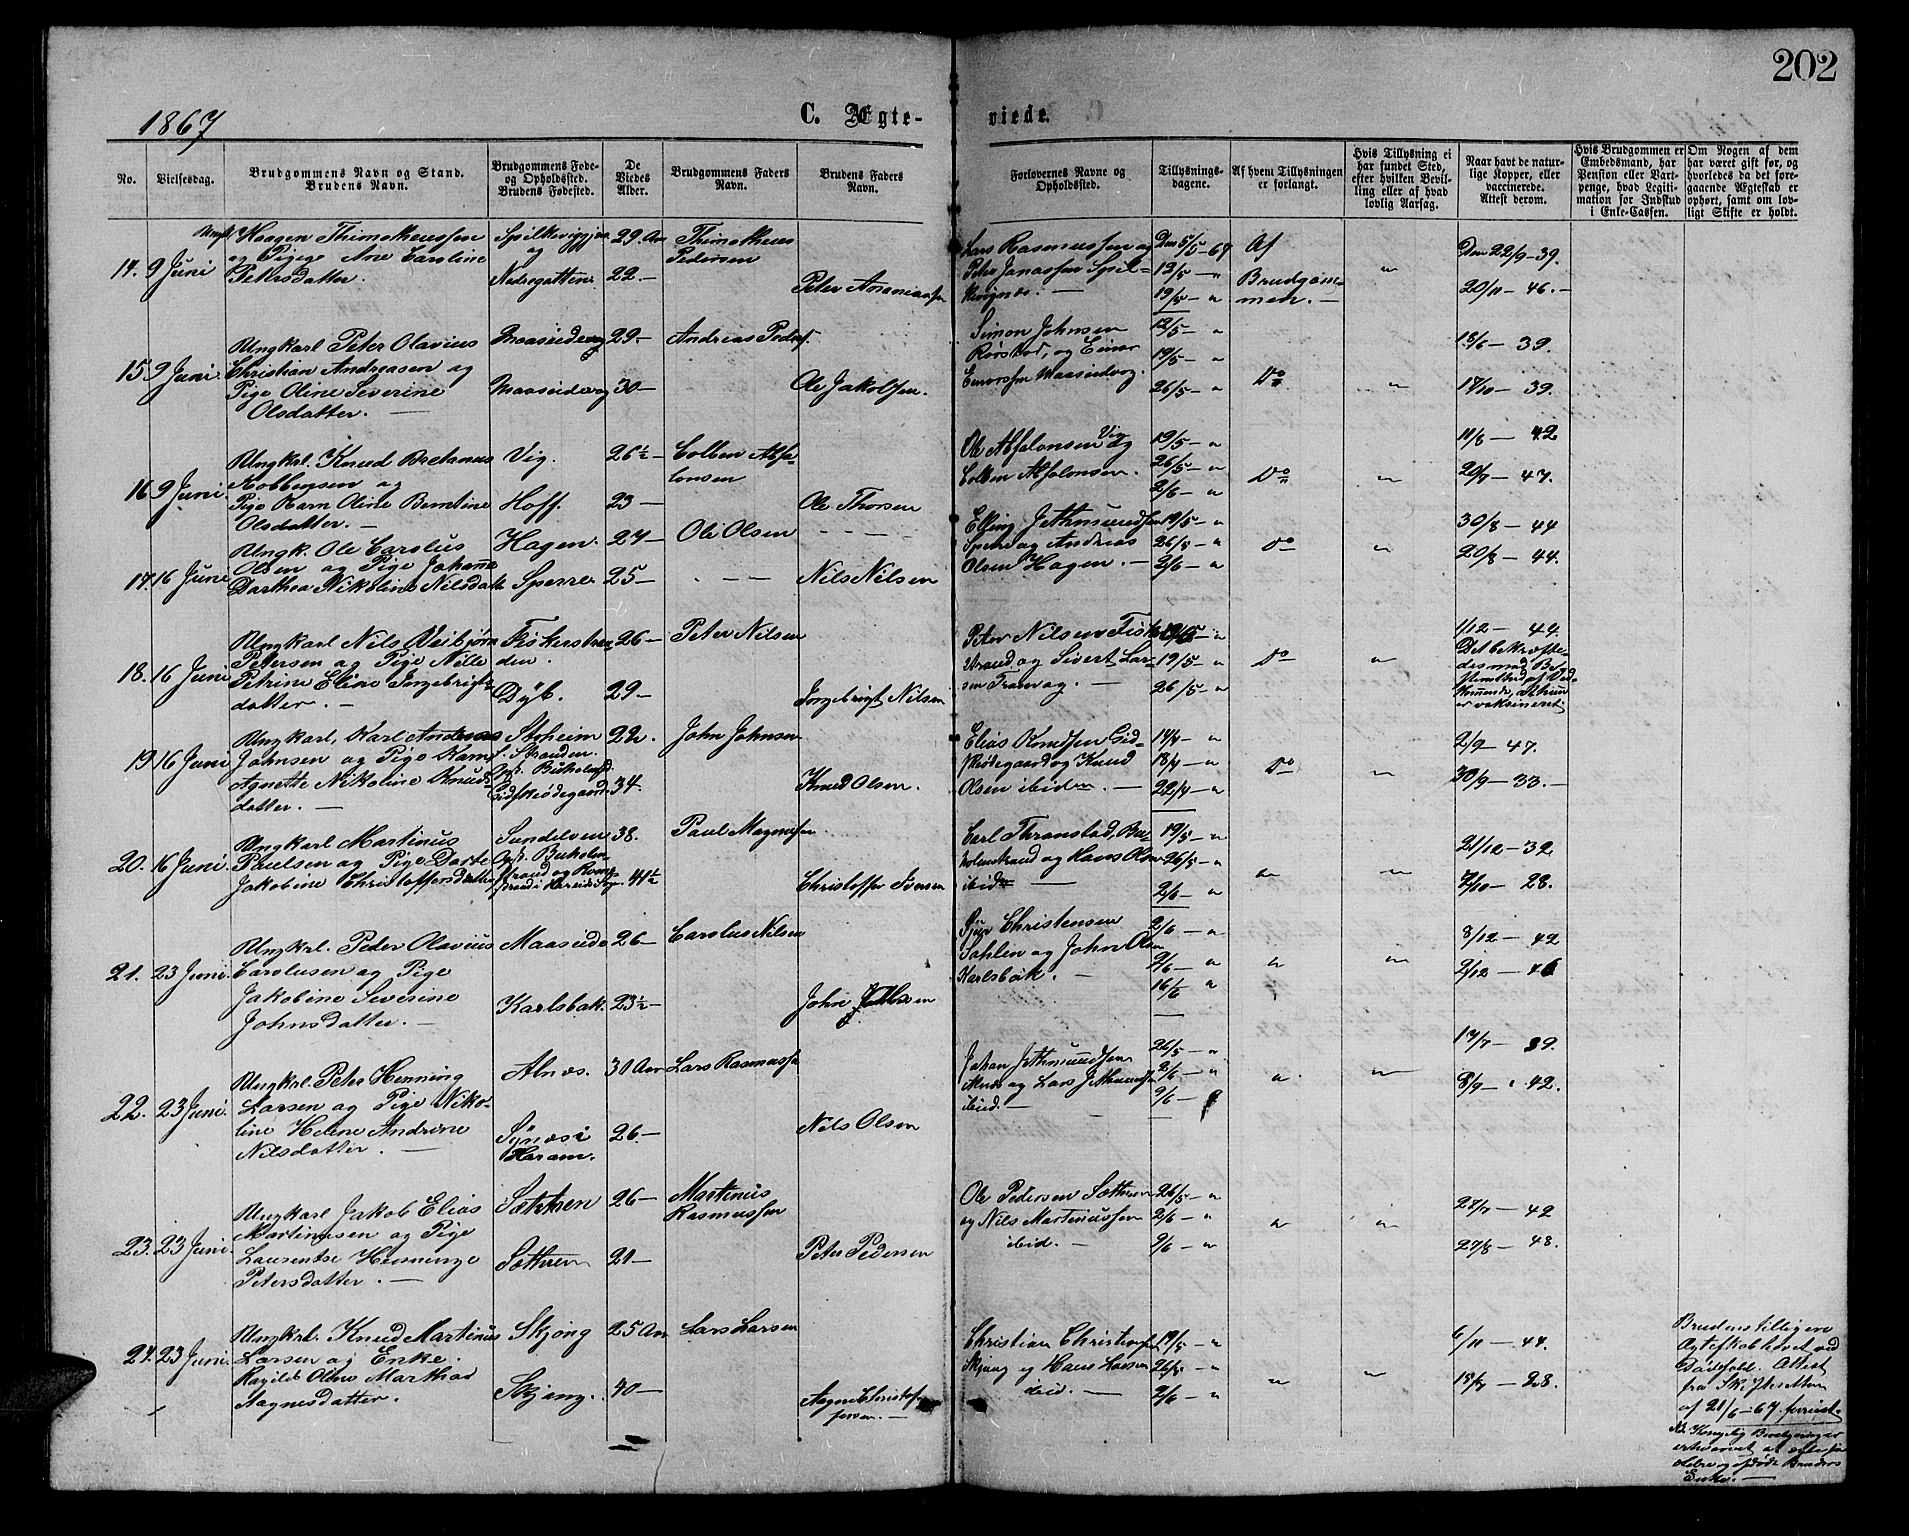 202
1867
C. Ægte-
viede.
No.
Vielsesdag.
Brudgommens Navn og Stand.
Brudens Navn.
Brudgommens Føde-
og Opholdssted.
Brudens Fødested.
De
Viedes
Alder.
Brudgommens Faders
Navn.
Brudens Faders
Navn.
Forlovernes Navne og
Opholdssted.
Tillysnings-
dagene.
Af hvem Tillysningen
er forlangt.
Hvis Tillysning ei
har fundet Sted,
efter hvilken Bevil-
ling eller af hvad
lovlig Aarsag.
Naar havt de natur-
lige Kopper, eller
vaccinerede.
Attest derom.
Hvis Brudgommen er
Embedsmand, har
Pension eller Vart-
penge, hvad Legiti-
mation for Indskud
i Enke-Cassen.
Om Nogen af dem
har været gift før, og
hvorledes da det fore-
gaaende Ægteskab er
ophørt, samt om lov-
ligt Skifte er holdt.
14. 9 Juni
Ungk. Haagen Thimotheussen
og Pige Ane Caroline
Petersdatter.
og
Nedregotten
29 Aar
22 —
Thimotheus
Pedersen
Peter Ananiassen
Lars Rasmussen og
Peter Jonassen Spil-
kevignæs. —
Den 5/5 - 67
12/5 — "
19/5 — "
Af
Brudgom-
men. —
"
Den 22/9 - 39.
20/11 - 46. —
15. 9 Juni.
Ungkarl Peter Olavius
Christian Andreassen og
Pige Oline Severine
Olsdatter. —
Maaseidevog
Maaseidevog
29 —
30 —
Andreas Peders.
Ole Jakobsen.
Simon Johnsen
Rørstad, og Einar
Einarssen Maaseidvog.
12/5 — "
19/5 — "
26/5 — "
Do
"
18/6 — 39.
17/10 — 39.
16. 9 Juni.
Ungkrl. Knud Bretanus
Kolbensen og
Pige Karn Oline Berntine
Olsdatter. —
Vig.
Hoff.
26½ —
23 —
Colben Absa-
lonsen
Ole Thorsen
Ole Absalonsen Vig og
Colben Absalonsen.
19/5 — "
26/5 — "
2/6 — "
Do
"
11/8 — 42
20/7 — 47.
17. 16 Juni
Ungk. Ole Carolus
Olsen og Pige Johanne
Darthea Nikoline Nilsdatt.
Hagen.
Sperre.
24 —
25 —
Ole Olsen
Nils Nilsen
Elling Jethmundsen
Sperre og Andreas
Olsen Hagen. —
19/5 — "
26/5 — "
2/6 — "
do
"
30/8 — 44
20/8 — 44.
18. 16 Juni
Ungkarl Nils Veibjørn
Petersen og Pige Nille
Petrine Eline Ingebrigts-
datter. —
Fiskerstran-
den.
Dyb.
26 —
29 —
Peter Nilsen
Ingebrigt Nilsen
Peter Nilsen Fisker-
strand og Sivert Lar-
sen Tranvag. —
19/5 — "
26/5 — "
Do
"
1/12 — 44.
Det bekræfte-
des med Be-
er vaksineret.
19. 16 Juni
Ungkarl, Karl Andreas
Johnsen og Pige Karn
Agnette Nikoline Knuds-
datter. —
Storheim
i Stranden.
Gidskeødegaard.
22.
34.
John Johnsen
Knud Olsen.
Elias Knudsen Gid-
skeødegaard og Knud
Olsen ibidem. —
14/4 — "
18/4 — "
22/4 — "
Do
"
2/9 — 47.
30/9 — 33. —
20. 16 Juni.
Ungkarl Martinus
Paulsen og Pige Dorte
Jakobine Christoffersdatter
Sundelven
38.
41½
Paul Magnussen
Christoffer Iversen
Carl Thranstad, Bu-
holmstrand og Hans Olsen
ibid. —
19/5 — "
26/5 — "
2/6 — "
"
"
21/12 — 32
7/10 — 28.
21. 23 Juni.
Ungkrl. Peder Olavius
Carolusen og Pige
Jakobine Severine
Johnsdatter. —
Maaseide
Karlsbak.
26 —
23½ —
Carolus Nilsen
John
Sjur Christensen
Sahlen og John Olsen
Karlsbak. —
2/6 — "
9/6 — "
16/6 "
"
"
8/12 — 42
2/12 — 46
22. 23 Juni.
Ungkrl. Peter Henning
Larsen og Pige Niko-
line Helene Andrine
Nilsdatter. —
Alnæs.
Synæs i
Haram.
30 Aar
26 —
Lars Rasmussen
Nils Olsen
Johan Jethmundsen
Alnæs og Lars Jethmundsen
ibid. —
26/5 — "
2/6 — "
9/6 —
"
"
17/7 — 39.
8/9 — 42.
23. 23 Juni.
Ungkarl Jakob Elias
Martinussen og Pige
Laurentse Henninge
Petersdatter. —
Sæthren
Sæthren
26 —
21 —
Martinus
Rasmussen
Peter Pedersen
Ole Pedersen Sæthren
og Nils Martinussen
ibid. —
26/5 — "
2/6 — "
9/6 — "
"
"
28/7 — 42
27/8 — 48.
24. 23 Juni.
Ungkrl. Knud Martinus
Larsen og Enke
Ragilde Oline Marthea
Aagnesdatter.
Skjong
Skjong.
25 Aar
40 —
Lars Larsen
Aagne Christof-
fersen. —
Christian Christiansen
Skjong og Hans Lassen
ibid. —
19/5 — "
26/5 — "
2/6 — "
"
"
6/11 — 44.
18/7 — 28.
Brudens tidligere
Ægteskab hævet ved
Dødsfald. Attest
fra Skifteretten
af 21/6 - 67 forevist.
NB. Kongelig Bevilgning er
Enke. —